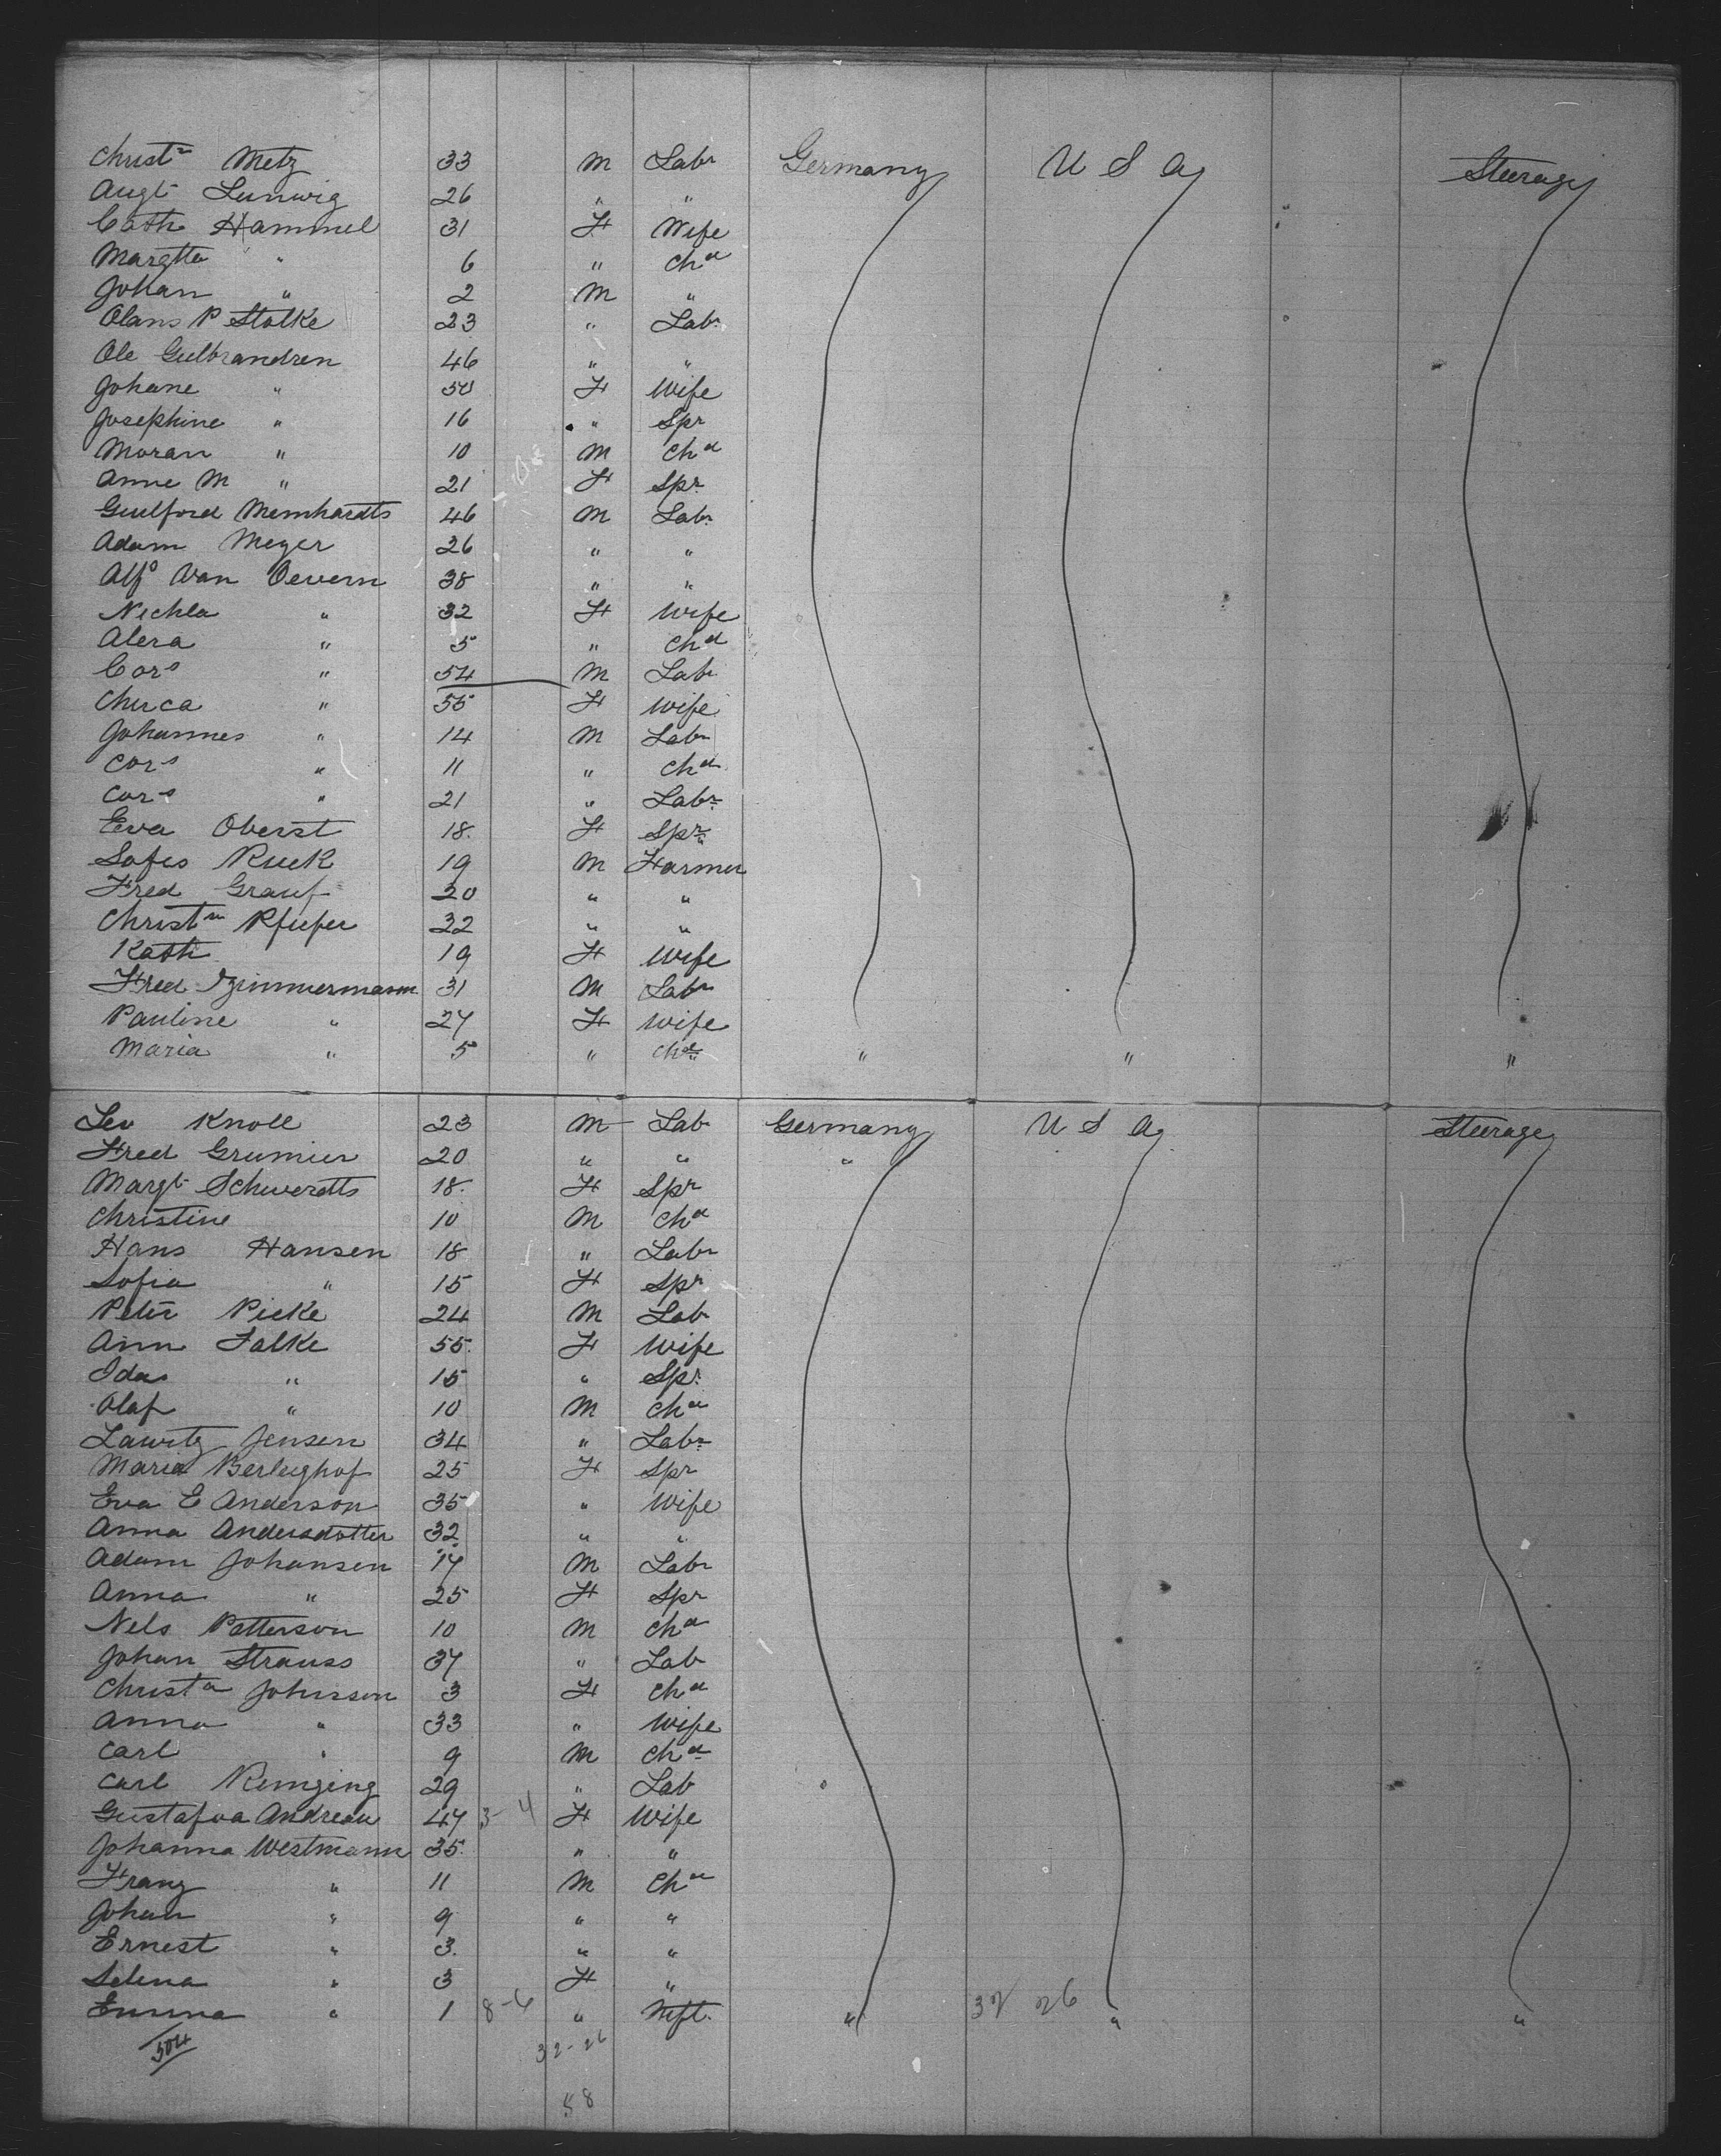 Christn Metz 33 M Labr Germany U S A Steerage
Augt Lunwig 26 " "
Cath Hammel 31 F Wife
Margtta " 6 " Chd
Johan " 2 M "
Olans P Stolke 23 " Labr
Ole Gulbrandren 46 " "
Johane " 50 F Wife
Josephine " 16 " Spr
Moran " 10 M Chd
Anne M " 21 F Spr
Guilford Memhardts 46 M Labr
Adam Meyer 26 " "
Alfo Van Oevern 38 " "
Nichla " 32 F Wife
Alera " 5 " Chd
Cors " 54 M Labr
Chirca " 55 F Wife
Johannes " 14 M Labr
Cors " 11 " Chd
Cors " 21 " Labr
Eva Oberst 18 F Spr
Sofes Ruek 19 M Farmer
Fred Grauf 20 " "
Christn Pfiefer 22 " "
Kath 19 F Wife
Fred Zimmermann 31 M Labr
Pauline " 27 F Wife
Maria " 5 " Chd " " "
Leo Knoll 23 M Lab Germany U S A Steerage
Fred Grumier 20 " " "
Margt Schwerdts 18 F Spr
Christine 10 M Chd
Hans Hansen 18 " Labr
Sofia " 15 F Spr
Peter Pieke 24 M Lab
Ann Falke 55 F Wife
Ida " 15 " Spr
Olaf " 10 M Chd
Lawitz Jensen 34 " Labr
Maria Berleghof 25 F Spr
Eva E Anderson 35 " Wife
Anna Andersdotter 32 " "
Adam Johansen 17 M Labr
Anna " 25 F Spr
Nels Patterson 10 M Chd
Johan Strauss 37 " Lab
Christa Johnson 3 F Chd
Anna " 33 " Wife
Carl " 9 M Chd
Carl Remging 29 " Lab
Gustafva Andreau 47 3-4 F Wife
Johanna Westmann 35 " "
Franz " 11 M Chd
Johan " 9 " "
Ernest " 3 " "
Selma " 3 F "
Emma " 1 8-6 " Inft " 32 26 " "
504 32-26
58